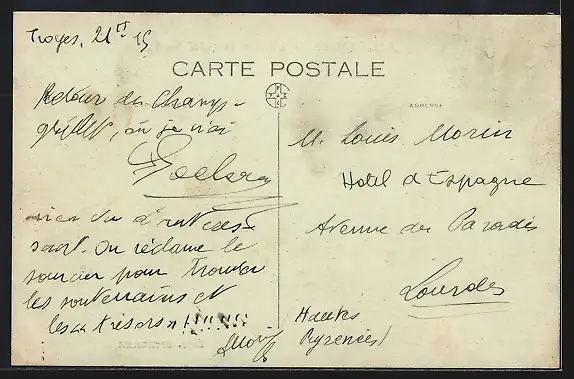 Troyes, 21 II 15
CARTE POSTALE
ADRESSE
Retour du Champ-
où je n'ai
rien vu d'intéres-
sant. On réclame le
sourcier pour trouver
les souterrains et
les "trésors" !!!!!!!!
M. Louis Morin
Hotel d'Espagne
Avenue du Paradis
Lourdes
Hautes
Pyrenées